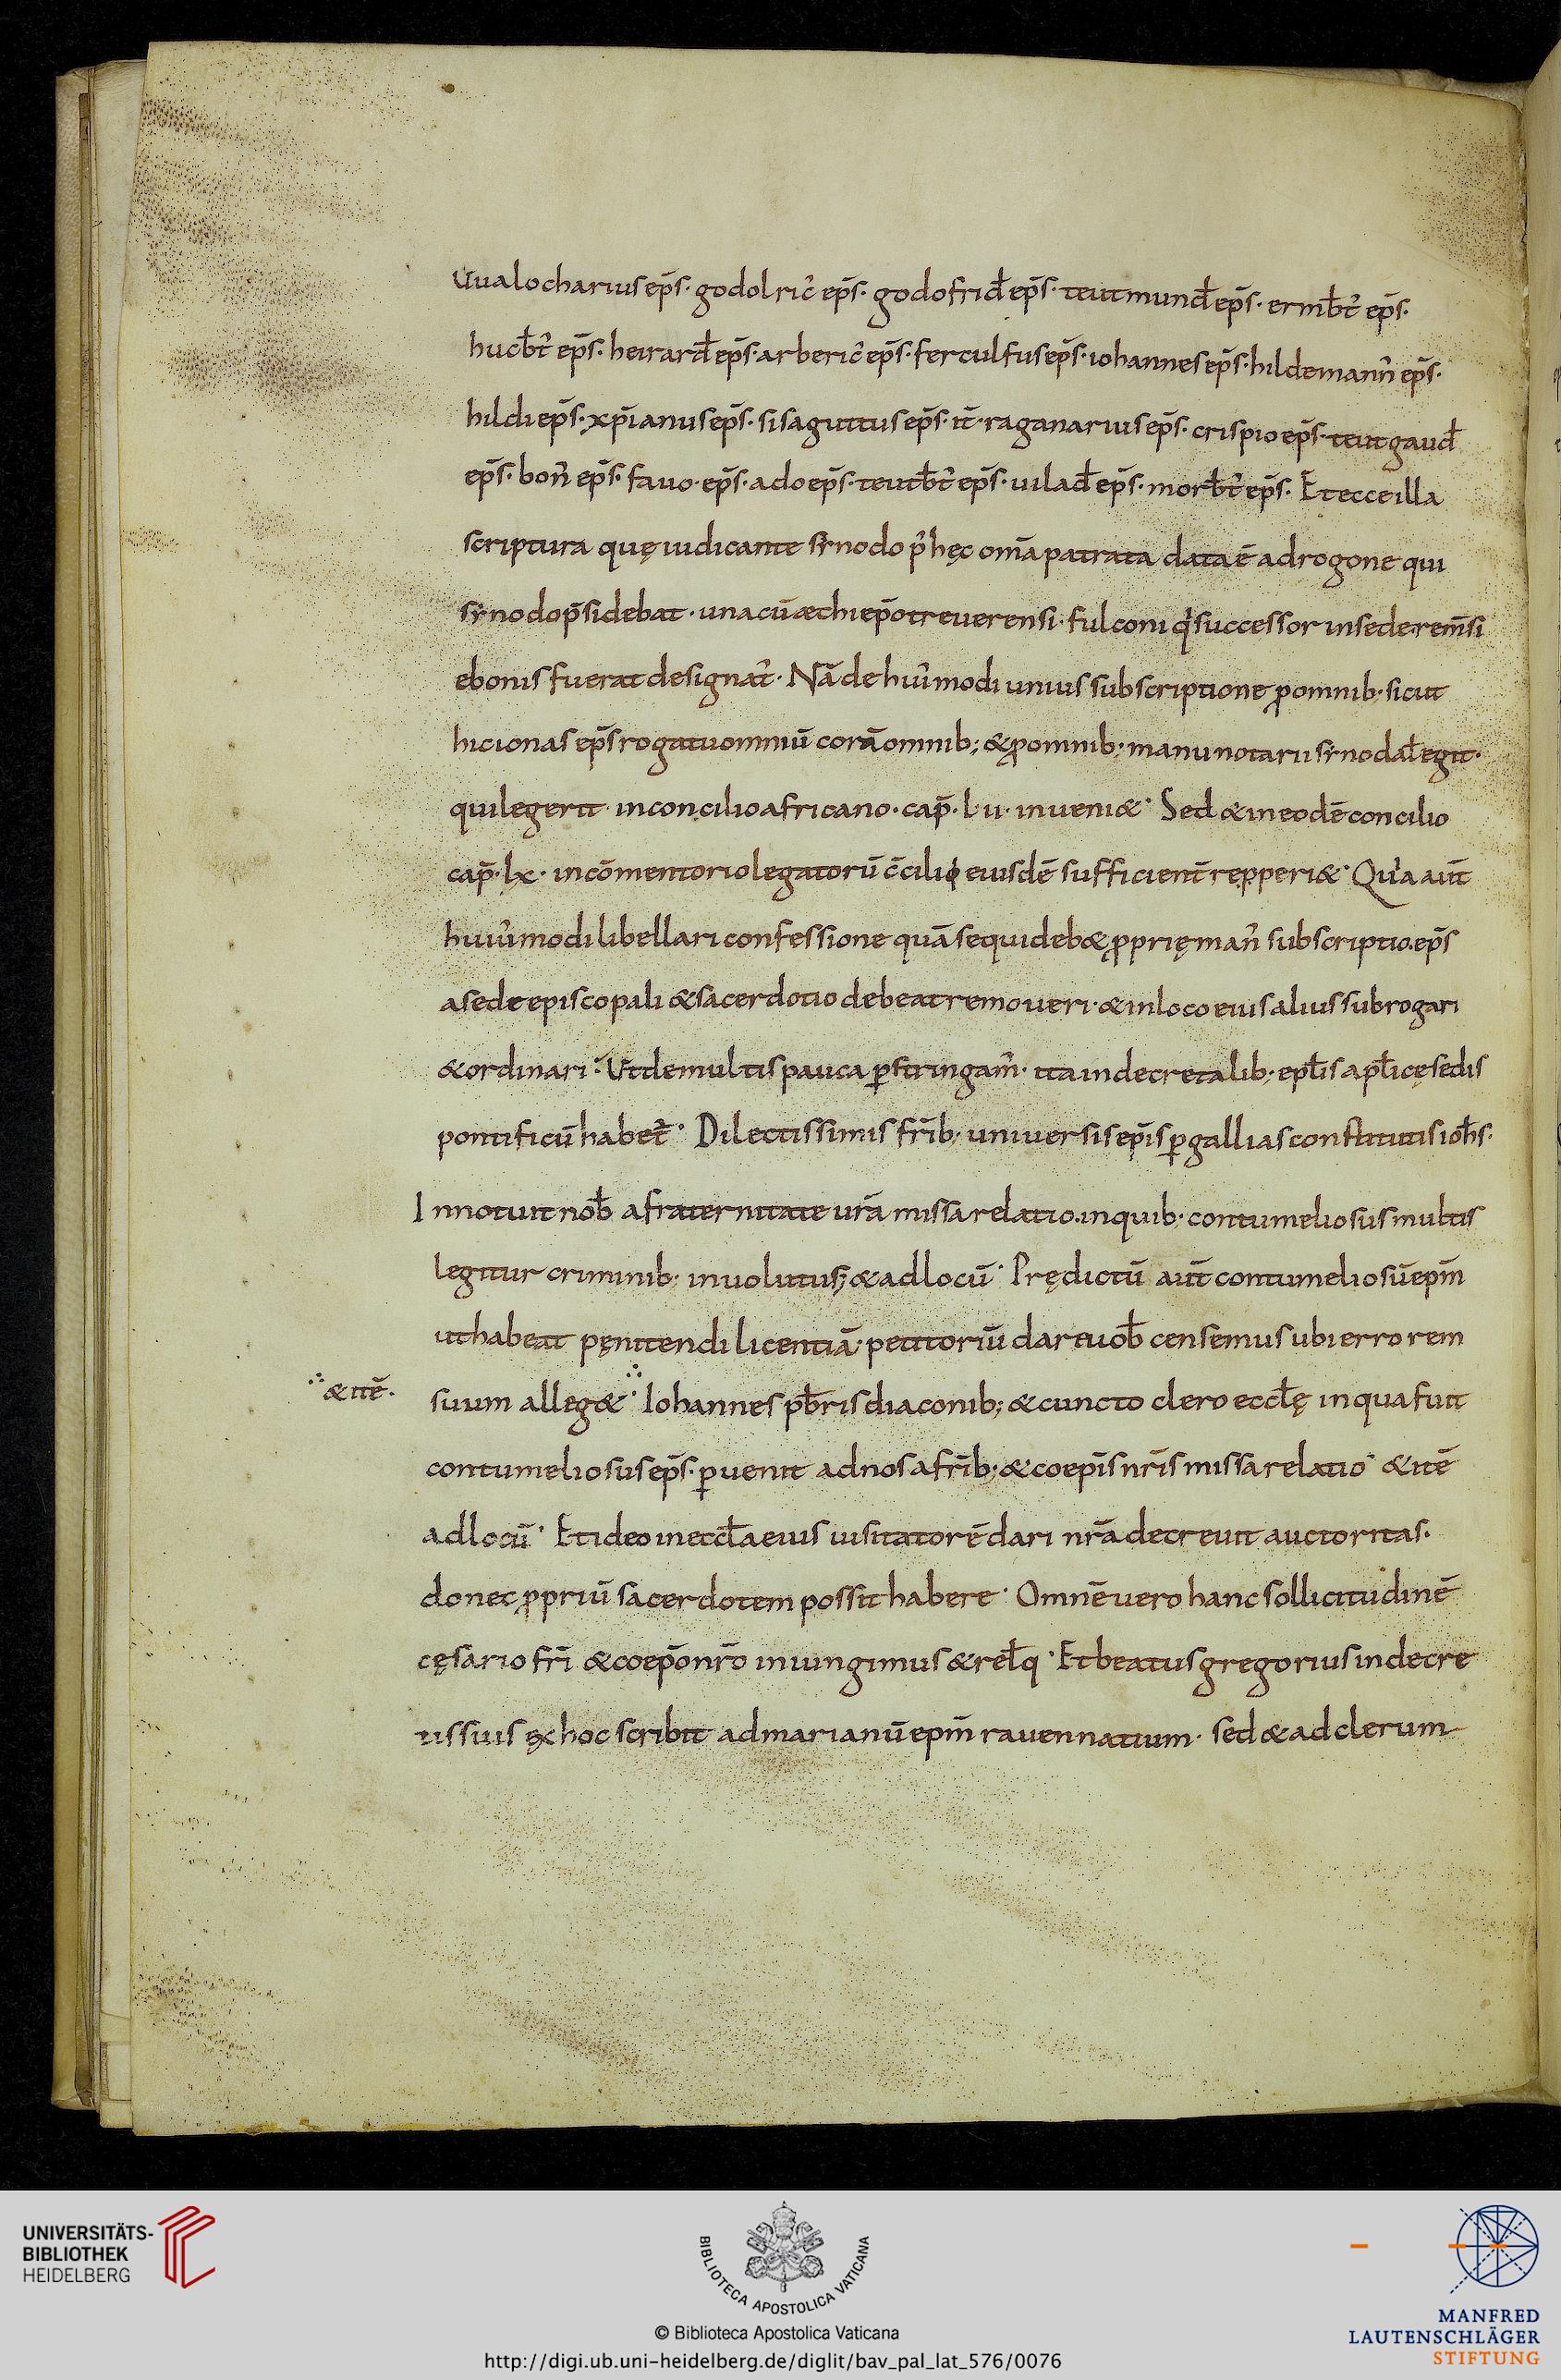 Uualocharius ep̄s · godolric̓ ep̄s · godofrid̄ ep̄s · teutmund̄ ep̄s · ermb̄t̓ ep̄s ·
hucb̄t̓ ep̄s · heirard̄ ep̄s · arberic̓ ep̄s · ferculfus ep̄s · iohannes ep̄s · hildemann̓ ep̄s ·
hildi ep̄s · xp̄ianus ep̄s · sisaguttus ep̄s · it̄ · raganarius ep̄s · crispio ep̄s · teutgaud̄
ep̄s · bon̓ ep̄s · favo · ep̄s · ado ep̄s · teutb̄t̓ ep̄s · uilad̄ ep̄s · morb̄t̓ ep̄s · Et ecce illa
scriptura quę iudicante synodo p̓ hęc om̄a patrata data ē a drogone qui
synodo p̄sidebat · una cū æthi ep̄o treuerensi · fulconi q̓ successor in sede rem̄si
ebonis fuerat designat̓ · Nā de hui̓modi unius subscriptione ꝑ omnib · sicut
hic ionas ep̄s rogatu omniū corā omnib; & ꝓ omnib; manu notarii synodal̄ egit ·
qui legerit · in concilio africano · cap̄ · lu · inueni& · Sed & in eodē concilio
cap̄ · lx · in cōmentorio legatorū c̄cilio eiusdē sufficient̄ repperi& · Quia aut̄
huiu̓modi libellari confessione quā sequi deb& ꝓprię man̓ subscriptio · ep̄s
a sede episcopali & sacerdotio debeat remoueri · & in loco eius alius subrogari
& ordinari · Ut de multis pauca ꝑstringam̓ · ita in decretalib; epl̄is apl̄icę sedis
pontificū habet̓ · Dilectissimis fr̄ib; universis ep̄is ꝑ gallias constitutis ioh̄s ·
Innotuit nob̄ a fraternitate ur̄a missa relatio · in quib; contumeliosus multis
legitur criminib; inuolutus; & ad locū · Prędictū aut̄ contumeliosū ep̄m
ut habeat pęnitendi licentiā · petitoriū dare uob̄ censemus ubi errorem
∴ & itē ·
suum alleg& · ∴ Iohannes pb̄ris diaconib; & cuncto clero eccl̄ę in qua fuit
contumeliosus ep̄s · ꝑuenit ad nos a fr̄ib; & coep̄is nr̄is missa relatio · & itē
ad locū · Et ideo in eccl̄a eius uisitatorē dari nr̄a decreuit auctoritas ·
donec ꝓpriū sacerdotem possit habere · Omnē vero hanc sollicitudinē
cęsario fr̄i & coep̄o nr̄o iniungimus & rel̄q · Et beatus gregorius in decre
tis suis ex hoc scribit ad marianū ep̄m ravennatium · sed & ad clerum
UNIVERSITÄTS-
BIBLIOTHEK
HEIDELBERG
BIBLIOTECA APOSTOLICA VATICANA
© Biblioteca Apostolica Vaticana
http://digi.ub.uni-heidelberg.de/diglit/bav_pal_lat_576/0076
MANFRED
LAUTENSCHLÄGER
STIFTUNG